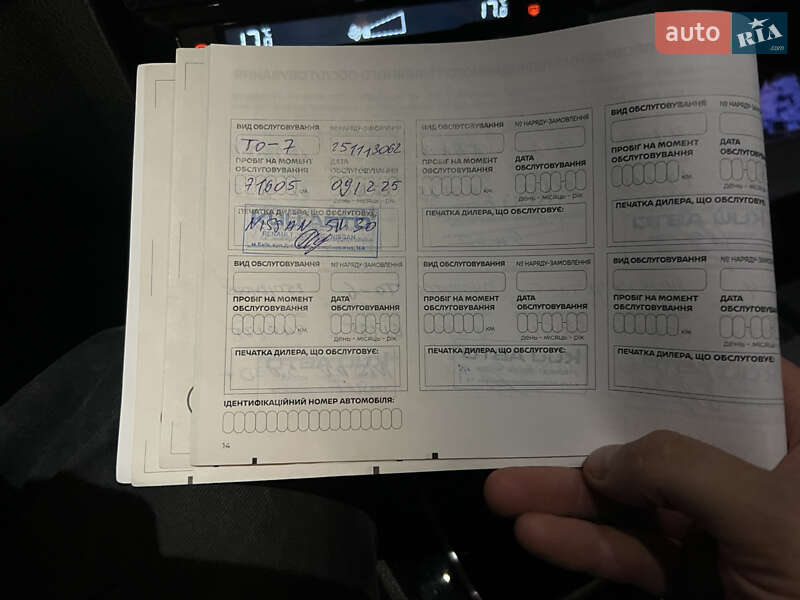 17.5
17.5
auto RIA .com
ВИД ОБСЛУГОВУВАННЯ № НАРЯДУ-ЗАМОВЛЕННЯ
ТО-7 251113062
ПРОБІГ НА МОМЕНТ ОБСЛУГОВУВАННЯ ДАТА ОБСЛУГОВУВАННЯ
71605 км 091225
день - місяць - рік
ПЕЧАТКА ДИЛЕРА, ЩО ОБСЛУГОВУЄ:
NISSAN 5W30
NISSAN
ВИД ОБСЛУГОВУВАННЯ № НАРЯДУ-ЗАМОВЛЕННЯ
ПРОБІГ НА МОМЕНТ ОБСЛУГОВУВАННЯ ДАТА ОБСЛУГОВУВАННЯ
км день - місяць - рік
ПЕЧАТКА ДИЛЕРА, ЩО ОБСЛУГОВУЄ:
ВИД ОБСЛУГОВУВАННЯ № НАРЯДУ-ЗАМОВЛЕННЯ
ПРОБІГ НА МОМЕНТ ОБСЛУГОВУВАННЯ ДАТА ОБСЛУГОВУВАННЯ
км день - місяць - рік
ПЕЧАТКА ДИЛЕРА, ЩО ОБСЛУГОВУЄ:
ВИД ОБСЛУГОВУВАННЯ № НАРЯДУ-ЗАМОВЛЕННЯ
ПРОБІГ НА МОМЕНТ ОБСЛУГОВУВАННЯ ДАТА ОБСЛУГОВУВАННЯ
км день - місяць - рік
ПЕЧАТКА ДИЛЕРА, ЩО ОБСЛУГОВУЄ:
ВИД ОБСЛУГОВУВАННЯ № НАРЯДУ-ЗАМОВЛЕННЯ
ПРОБІГ НА МОМЕНТ ОБСЛУГОВУВАННЯ ДАТА ОБСЛУГОВУВАННЯ
км день - місяць - рік
ПЕЧАТКА ДИЛЕРА, ЩО ОБСЛУГОВУЄ:
ВИД ОБСЛУГОВУВАННЯ
ПРОБІГ НА МОМЕНТ ОБСЛУГОВУВАННЯ ДАТА ОБСЛУГОВУВАННЯ
км день - місяць
ПЕЧАТКА ДИЛЕРА, ЩО ОБСЛУГОВУЄ:
ІДЕНТИФІКАЦІЙНИЙ НОМЕР АВТОМОБІЛЯ:
14